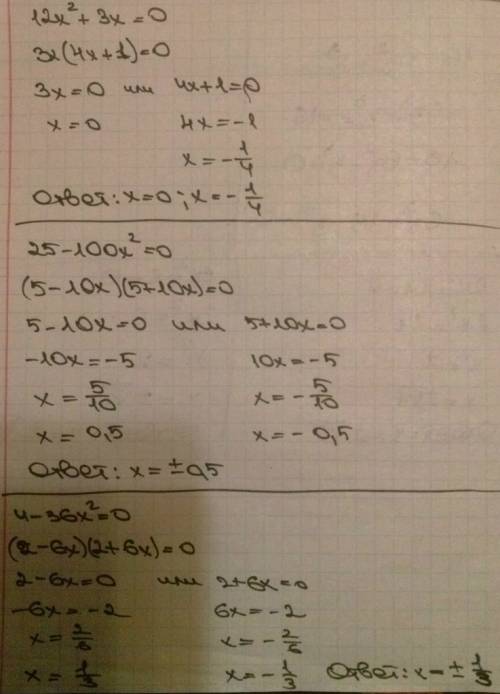 12x² + 3x = 0
3x(4x+1)=0
3x=0 или 4x+1=0
x=0 4x=-1
x=-1/4
Ответ: x=0; x=-1/4
25-100x²=0
(5-10x)(5+10x)=0
5-10x=0 или 5+10x=0
-10x=-5 10x=-5
x=5/10 x=-5/10
x=0,5 x=-0,5
Ответ: x=±0,5
4-36x²=0
(2-6x)(2+6x)=0
2-6x=0 или 2+6x=0
-6x=-2 6x=-2
x=2/6 x=-2/6
x=1/3 x=-1/3 Ответ: x=±1/3